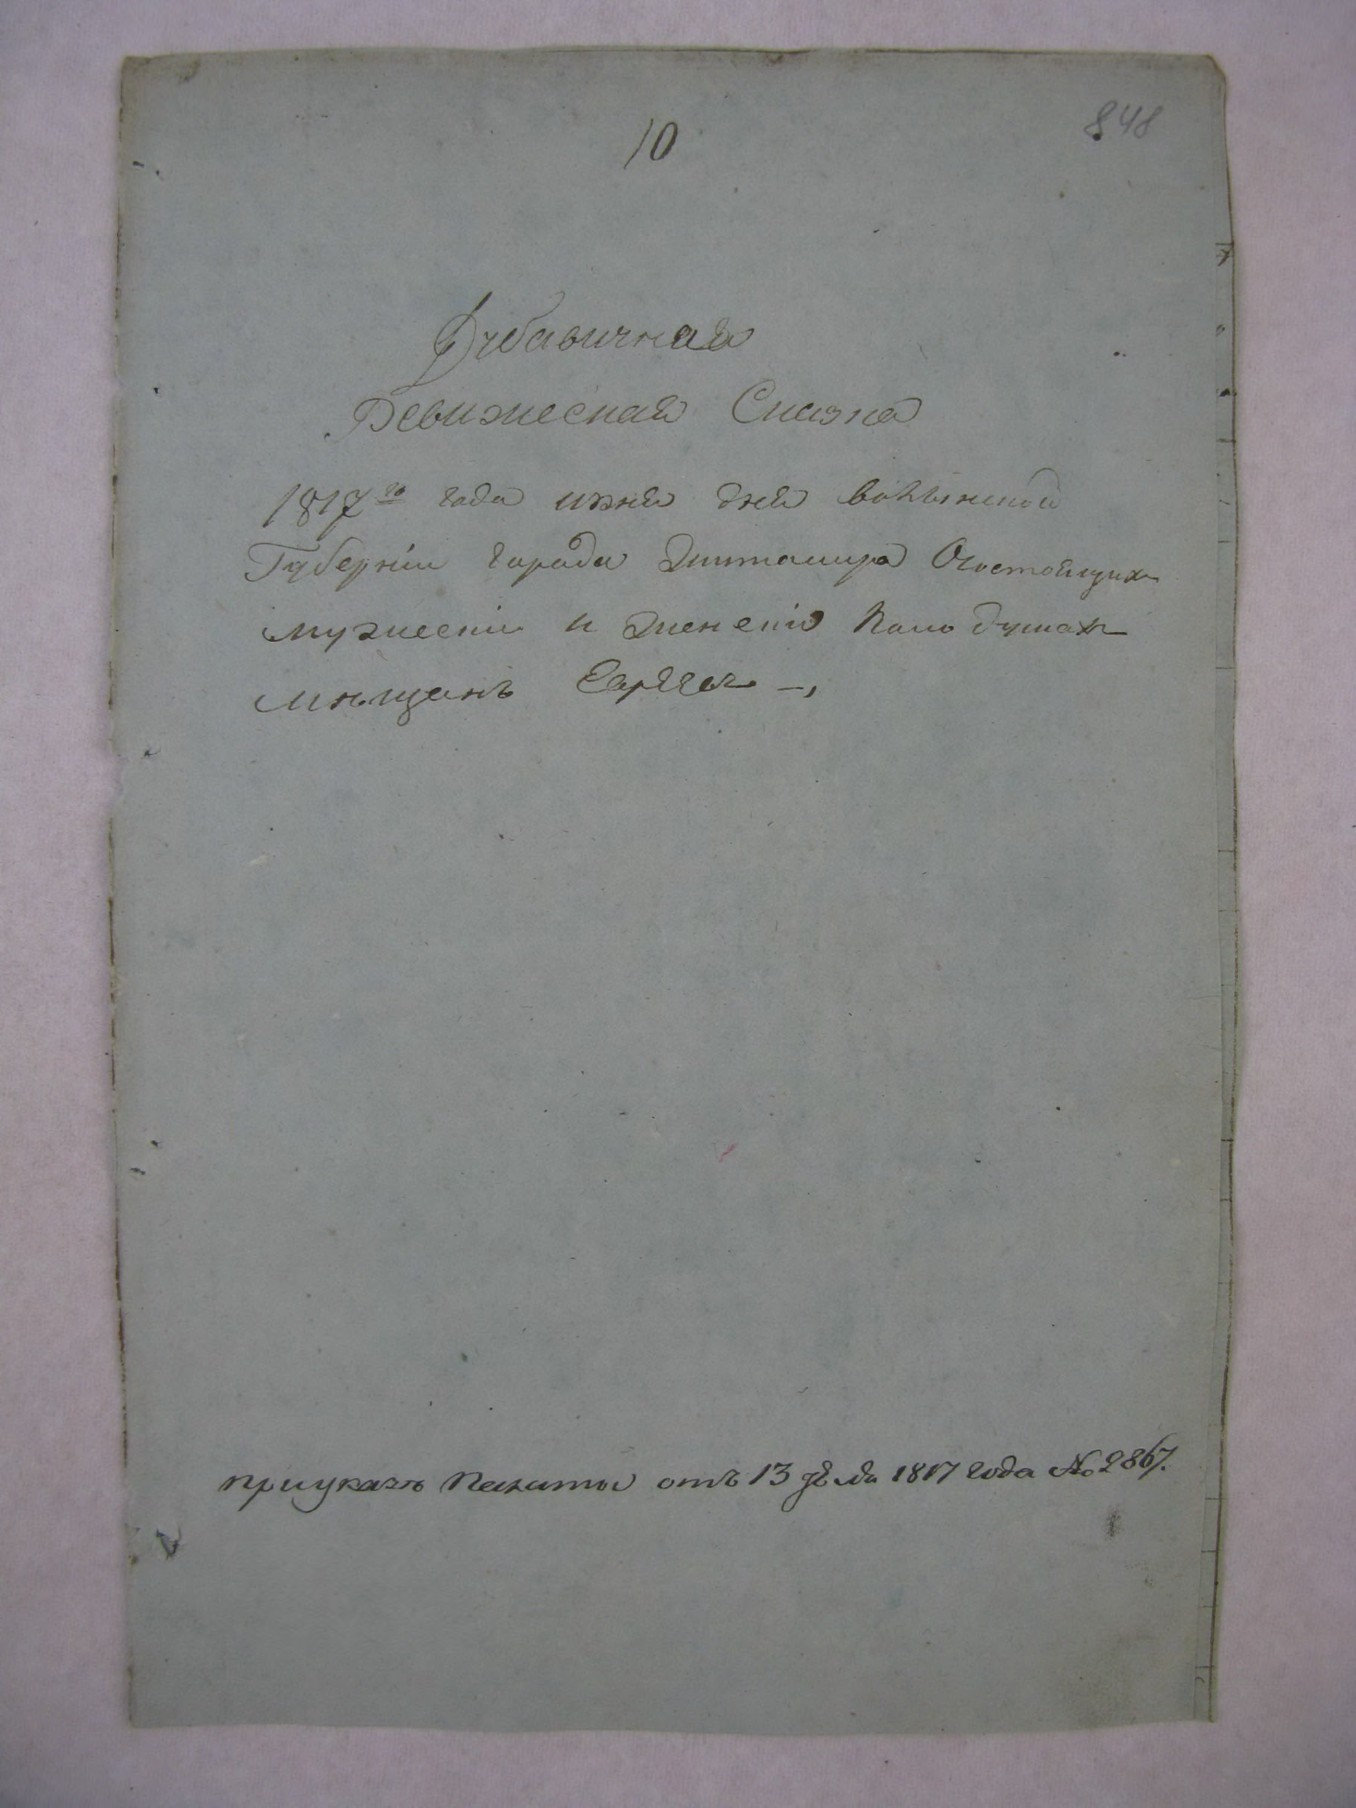 10
848
Дубавичная
Ревижеская Сказка
1817го года июня дня волынской
Губерніи города Житомира О состоящих
мужескіи и женскіи пола душах
мѣщанъ Евреев
при указѣ Палаты отъ 13 декабря 1817 года № 2867.